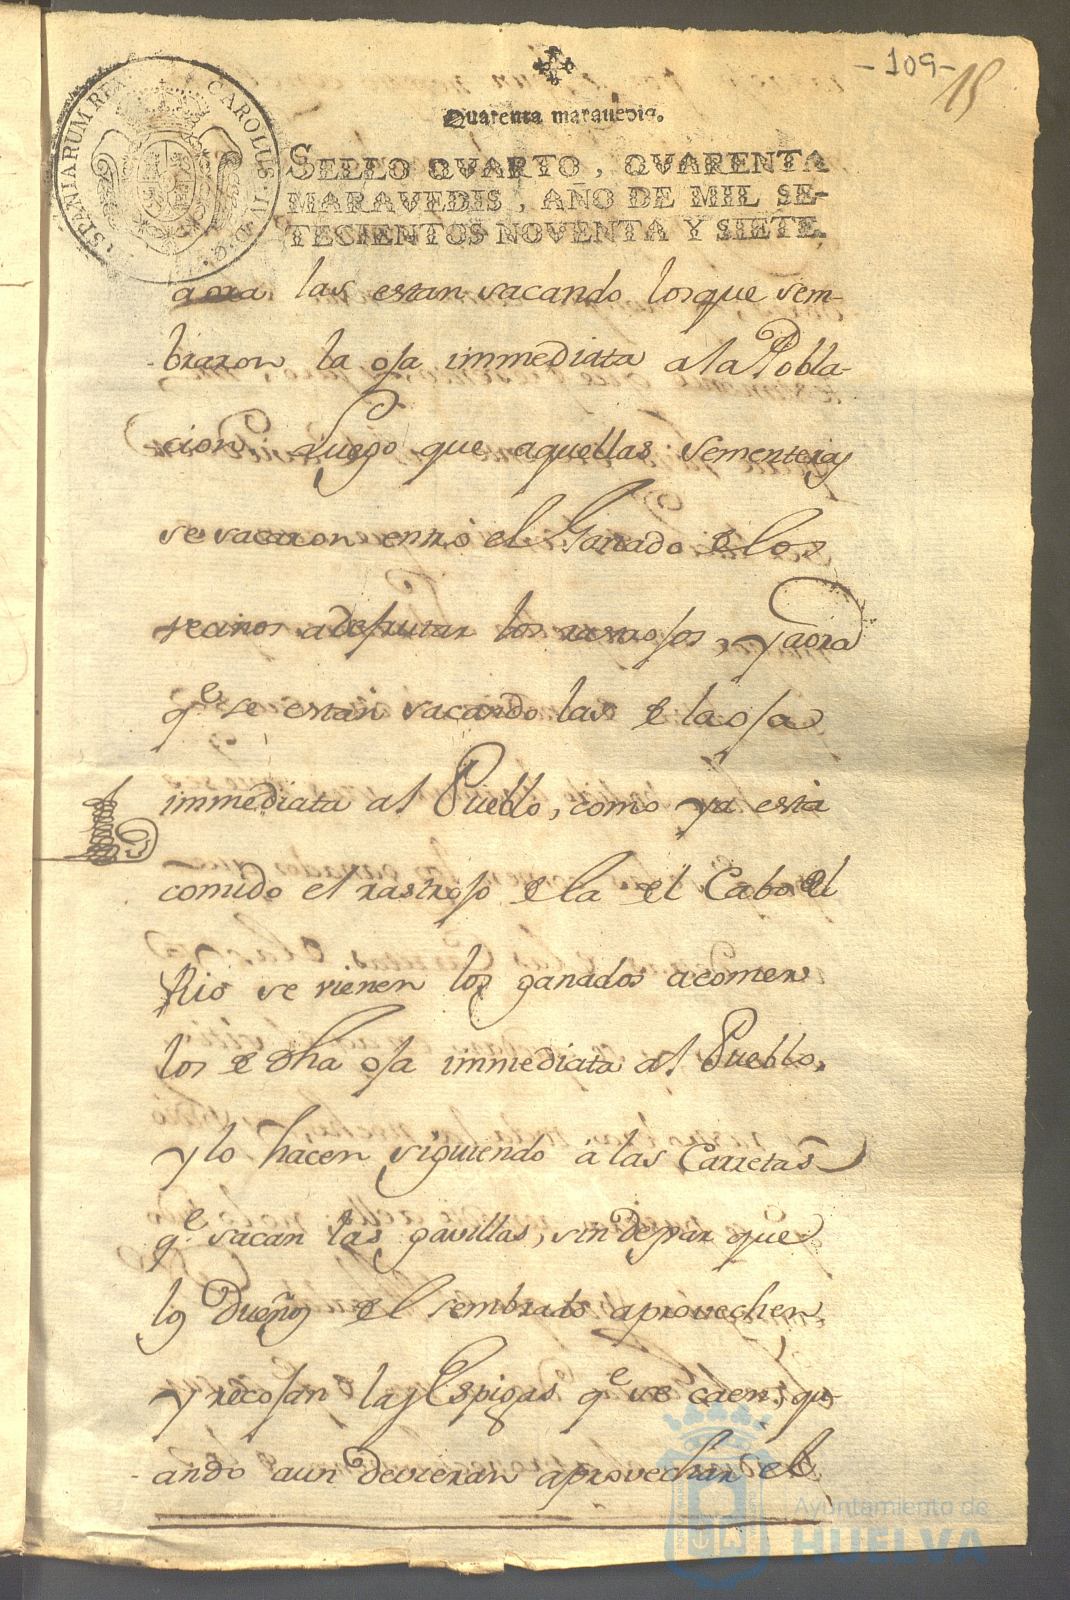 -109-
15
Quarenta marauedis.
SELLO QVARTO, QVARENTA
MARAVEDIS, AÑO DE MIL SE-
TECIENTOS NOVENTA Y SIETE.
CAROLUS · IV · D · G · HISPANIARUM REX
aora las estan sacando los que sem-
-braron la oja immediata a la Pobla-
cion Luego que aquellas sementeras
se sacaron entró el Ganado de los
vecinos a desfrutar los rastrojos, y aora
qe. se estan sacando las de la oja
immediata al Pueblo, como ya esta
comido el rastrojo de la del Cabo del
Rio se vienen los ganados a comer
los de dha oja immediata al Pueblo,
y lo hacen siguiendo à las Carretas
qe. sacan las gavillas, sin dejar que
los Dueños del sembrado aprovechen,
y recojan las Espigas qe. se caen, qu-
-ando aun devieran aprovechar el
Ayuntamiento de
HUELVA